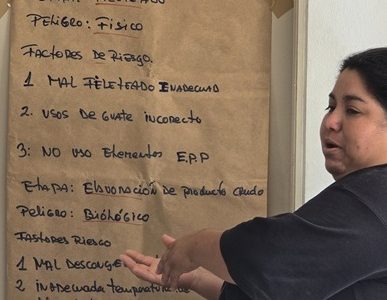 Peligro: Físico
Factores de Riesgo.
1 Mal Fileteado Inadecuad
2. Usos de Guate incorrecto
3: No uso Elementos E.P.P
Etapa: Elavoración de producto crudo
Peligro: Biólógico
Fastores Riesgo
1 Mal Desconge
2 inadecuada temperatura de